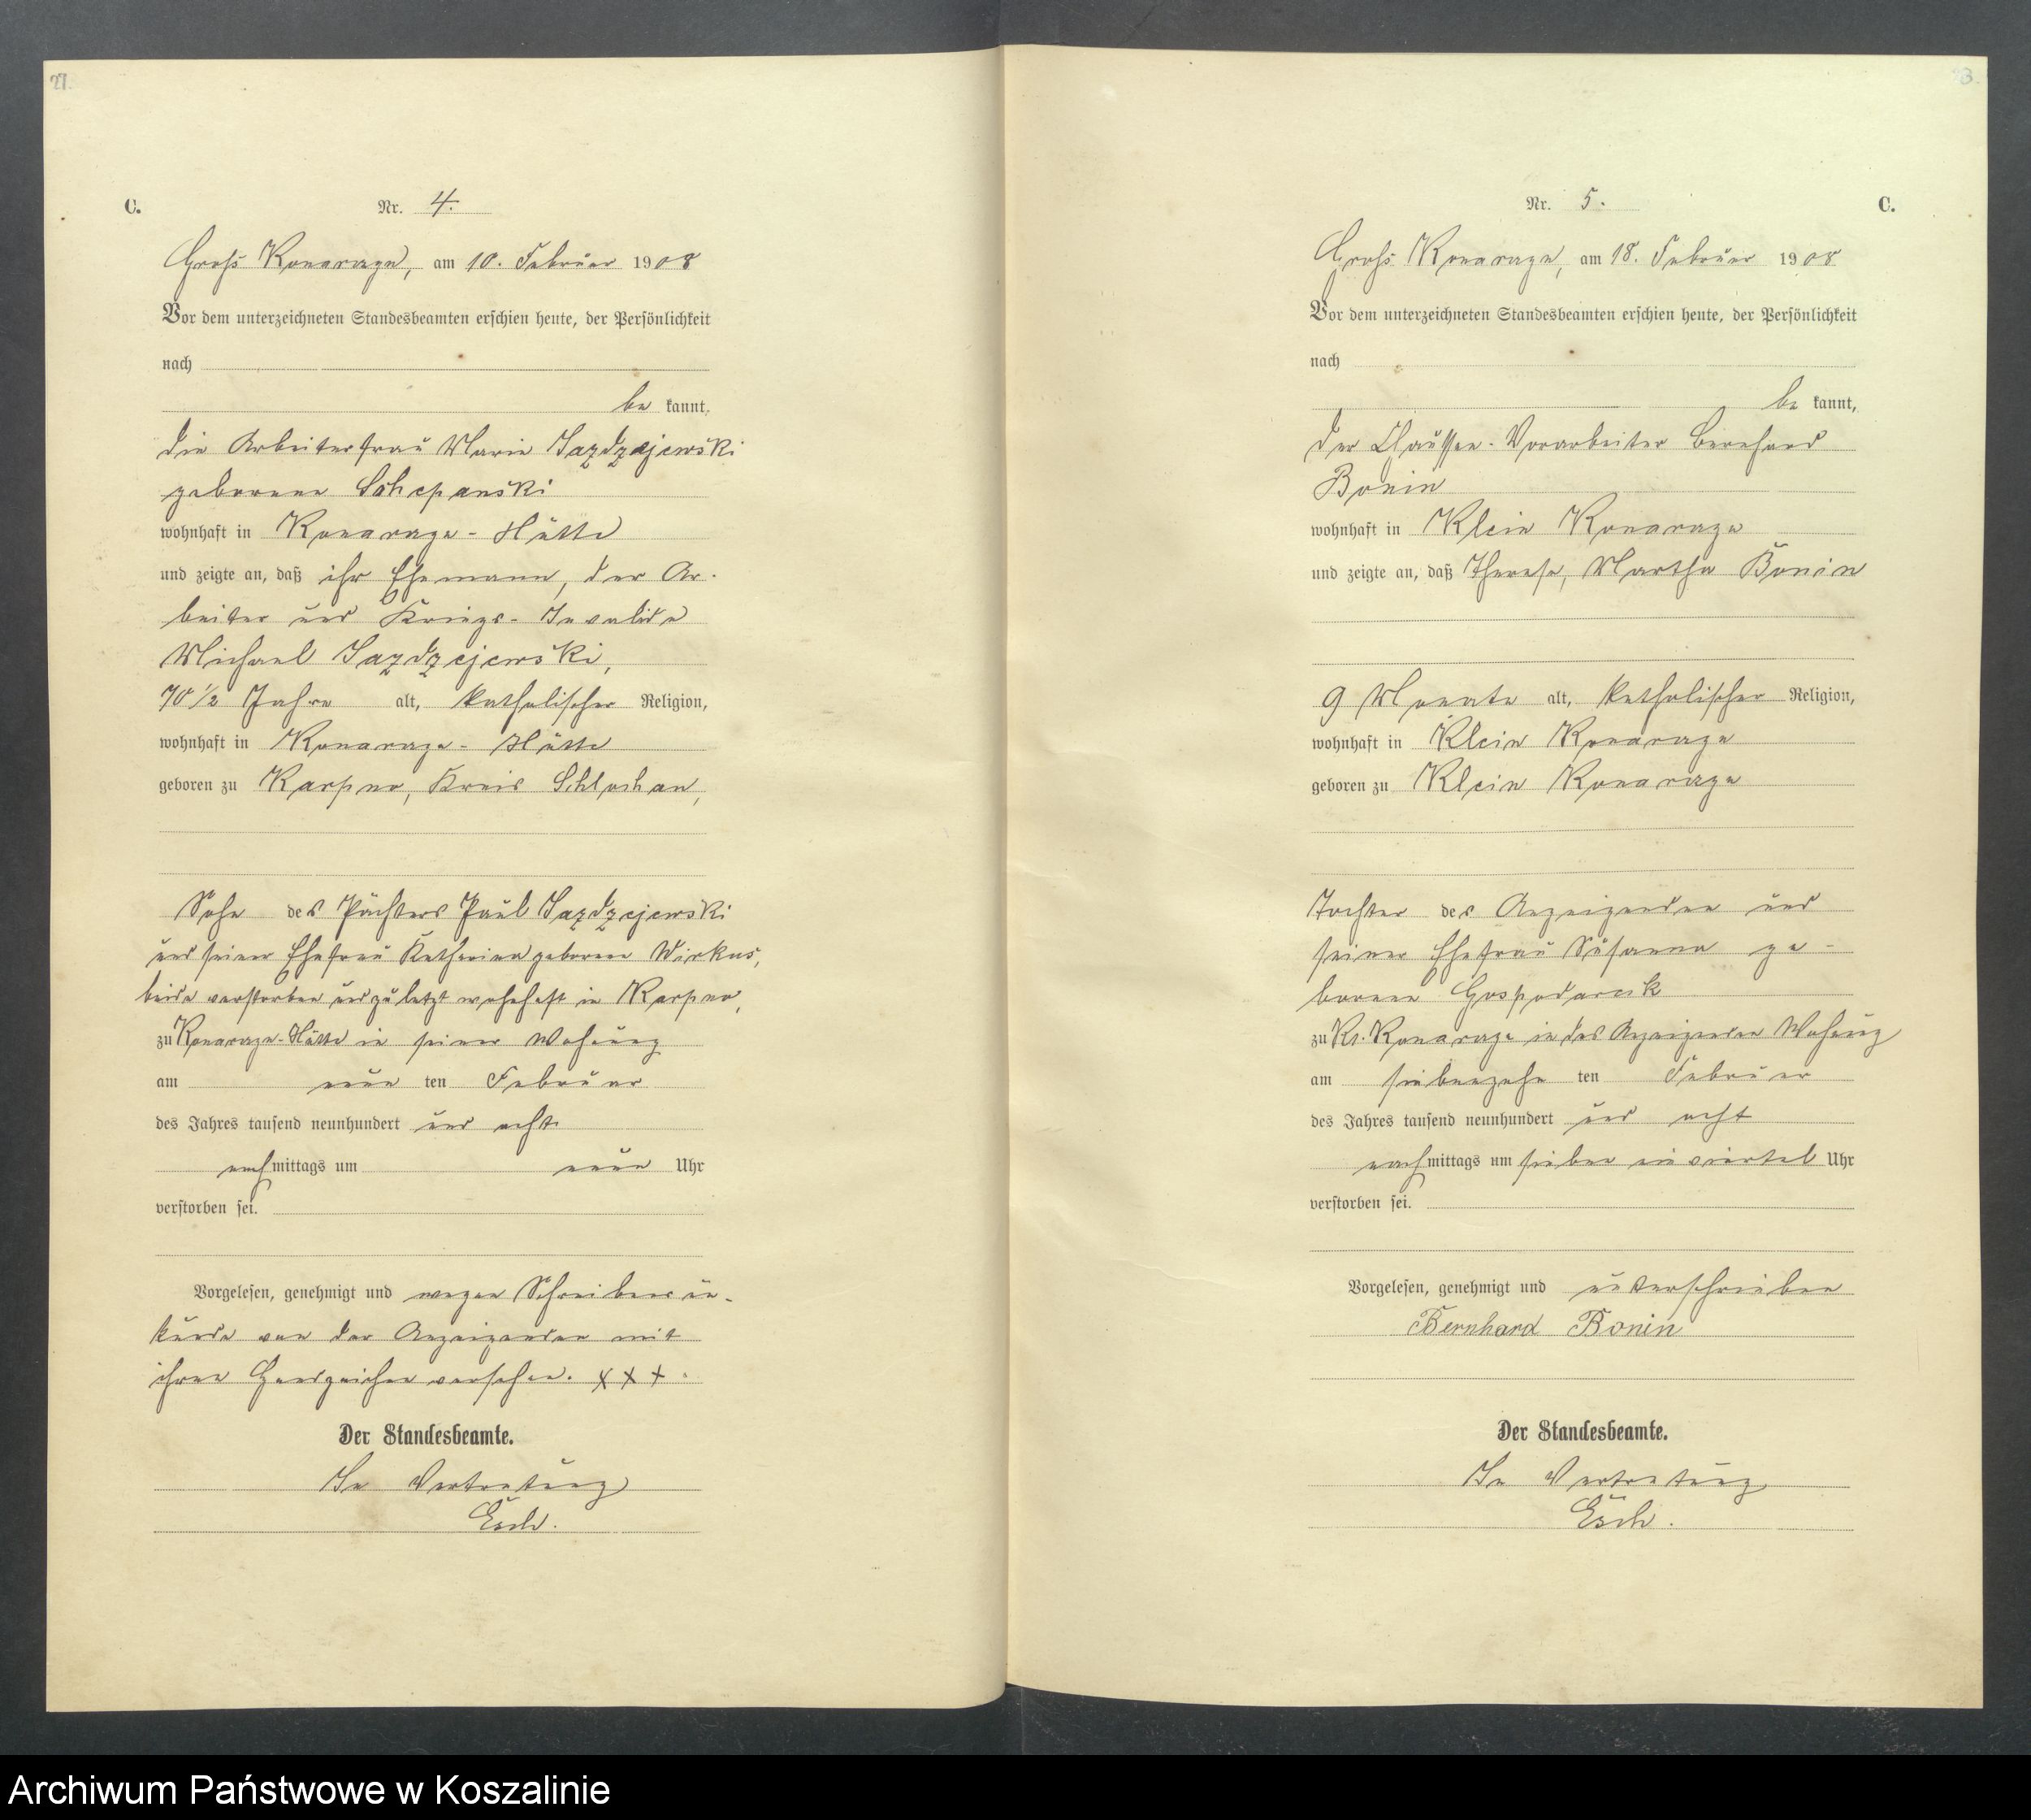 27.
C.
Nr. 4.
Gross Konarazyn, am 10. Februar 1908
Vor dem unterzeichneten Standesbeamten erschien heute, der Persönlichkeit
nach
be kannt,
die Arbeiterfrau Marie Jazdzejewski
geborene Schepanski
wohnhaft in Konarzyn-Hütte
und zeigte an, daß ihr Ehemann, der Ar-
beiter und Kriegs-Invalide
Michael Jazdzejewski,
70 1/2 Jahre alt, katholischer Religion,
wohnhaft in Hütte
geboren zu Karpno, Kreis Schlochau,
Sohn des Pächters Paul Jazdzejewski
und seiner Ehefrau Katharina geborene Wirkus,
beide verstorben und zuletzt wohnhaft in Karpno,
zu Hütte in seiner Wohnung
am neun ten Februar
des Jahres tausend neunhundert und acht
nachmittags um neun Uhr
verstorben sei.
Vorgelesen, genehmigt und wegen Schreibensun-
kunde von der Anzeigenden mit
ihren Handzeichen versehen. xxx
Der Standesbeamte.
In Vertretung
Esch.
Nr. 5.
C.
Gross am 18. Februar 1908
Vor dem unterzeichneten Standesbeamten erschien heute, der Persönlichkeit
nach
be kannt,
der Chaussee-Vorarbeiter Bernhard
Bonin
wohnhaft in Klein
und zeigte an, daß Therese, Martha Bonin
9 Monate alt, katholischer Religion,
wohnhaft in Klein
geboren zu Klein
Tochter des Anzeigenden und
seiner Ehefrau Susanna ge-
borene Gospodarek
zu Kl. in des Anzeigenden Wohnung
am siebenzehn ten Februar
des Jahres tausend neunhundert und acht
nachmittags um sieben ein viertel Uhr
verstorben sei.
Vorgelesen, genehmigt und unterschrieben
Bernhard Bonin
Der Standesbeamte.
In Vertretung
Esch.
Archiwum Państwowe w Koszalinie